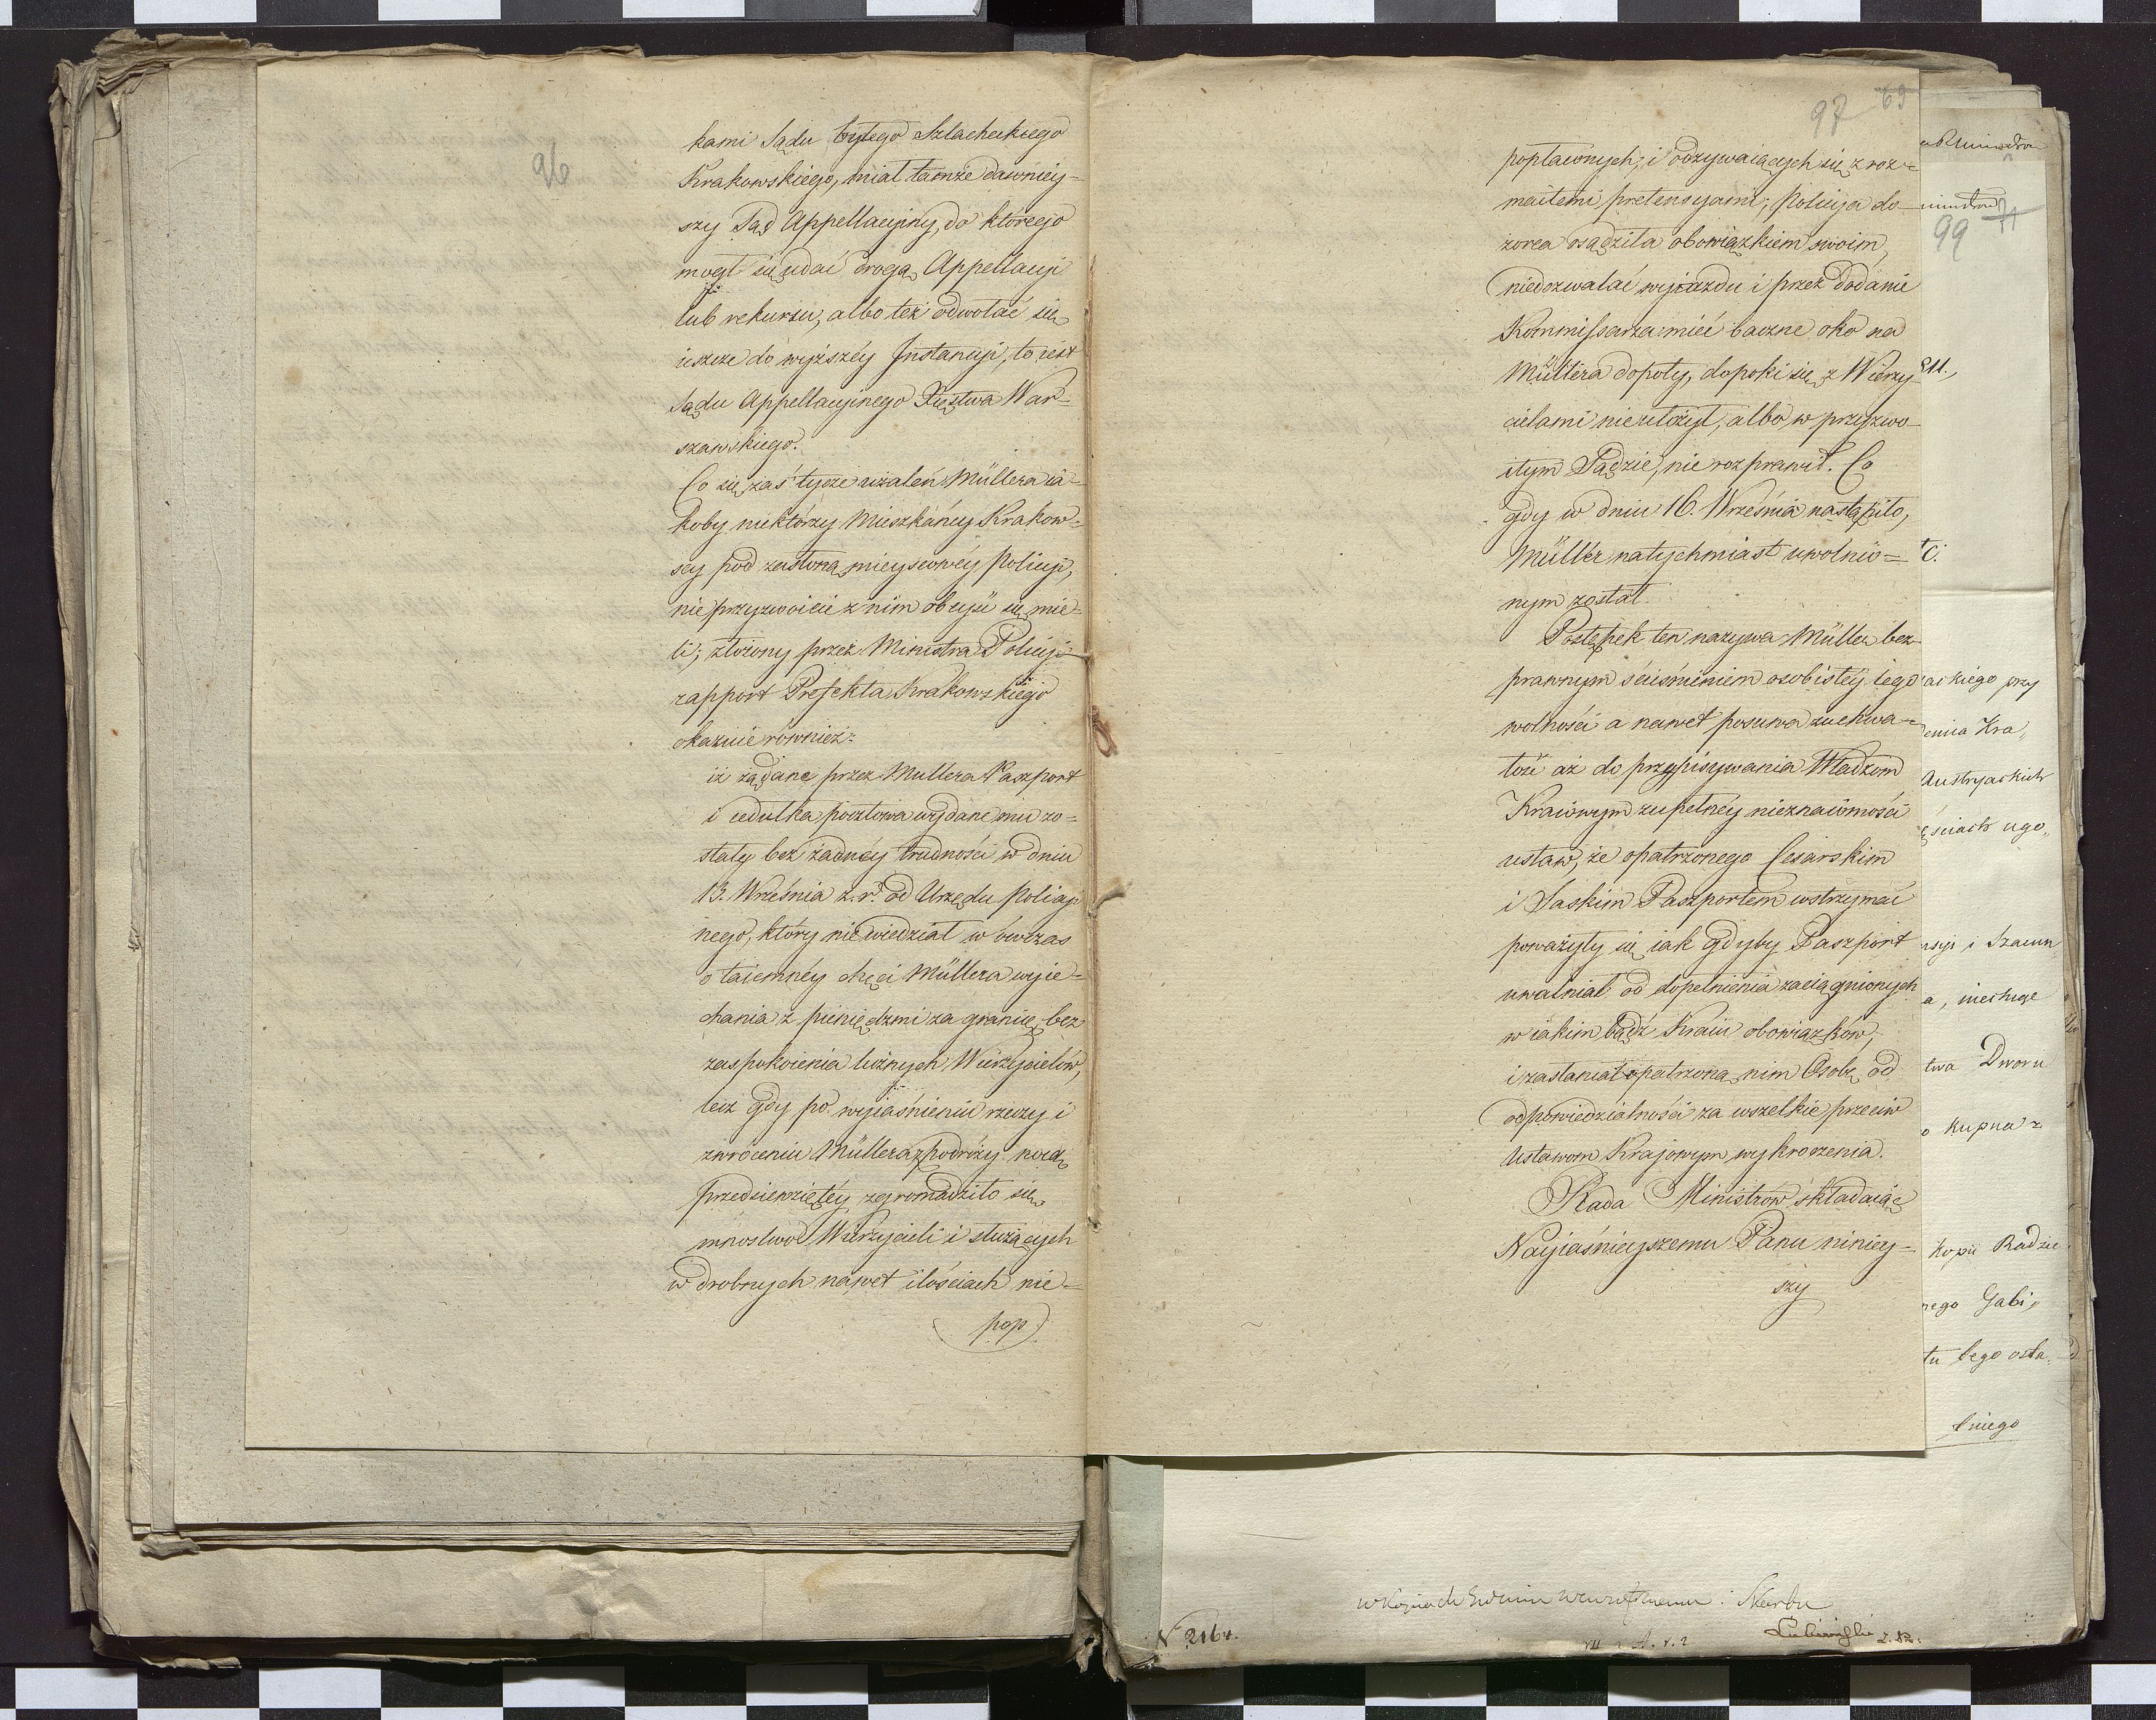 96
kami Sądu byłego Szlacheckiego
Krakowskiego, miał tamże dawniey-
szy Sąd Appellacyjny, do którego
mógł się udać drogą Appellacji
lub rekursu, albo też odwołać się
ieszcze do wyższéy Instancji, to iest
Sądu Appellacyjnego Xięstwa War-
szawskiego.
Co się zaś tycze użaleń Müllera ia-
koby niektórzy Mieszkáńcy Krakow-
scy pod zasłoną mieyscowéy Policyi,
nieprzyzwoicie z nim obeyść się mie-
li; złożony przez Ministra Policyi
rapport Prefekta Krakowskiego
okazuie również:
iż żądane przez Mullera Paszport
i cedułka pocztowa wydane mu zo-
stały bez żadnéy trudności w dniu
13. Września z. r. od Urzędu Policyi
nego, który niewiedział wówczas
o taiemnéy chęci Müllera wyie-
chania z pieniędzmi za granicę bez
zaspokoienia licznych Wierzycielów,
lecz gdy po wyiaśnieniu rzeczy i
zwróceniu Müllera z podróży nocą
przedsięwziętéy zgromadziło się
mnóstwo Wierzycieli i służących
w drobnych nawet ilościach nie-
pop
97 69
popłaconych, i odzywaiących się z roz-
maitemi pretensyami; Policya do-
zorca osądziła obowiązkiem swoim,
niedozwalać wyiazdu i przez dodanie
Kommissarza mieć baczne oko na
Müllera dopoty, dopoki się z Wierzy-
cielami nieułożył, albo w przyzwo-
itym Sądzie, nie rozprawił. Co
gdy w dniu 16. Września nastąpiło,
Müller natychmiast uwolnio-
nym został.
Postępek ten nazywa Müller bez-
prawnym ściśnieniem osobistéy iego
wolności a nawet posuwa zuchwa-
łość aż do przypisywania Władzom
Kraiowym zupełnéy nieznaiomości
ustaw, że opatrzonego Cesarskim
i Saskim Paszportem wstrzymać
poważyły się, iak gdyby Paszport
uwalniał od dopełnienia zaciągnionych
w iakim bądź Kraiu obowiązków,
i zasłaniał opatrzoną nim Osobę od
odpowiedzialności za wszelkie przeciw
Ustawom Krajowym wykroczenia.
Rada Ministrów składaiąc
Nayiaśnieyszemu Panu niniey-
szy
99 71
ackiego przy
enia Kra„
Austryackich
ęściach ugo„
i Szacun
a, niechuje
twa Dworu
o kupna
kopii Radzie
nego Gabi„
tu tego osta„
tniego
N 2164.
Skarbu